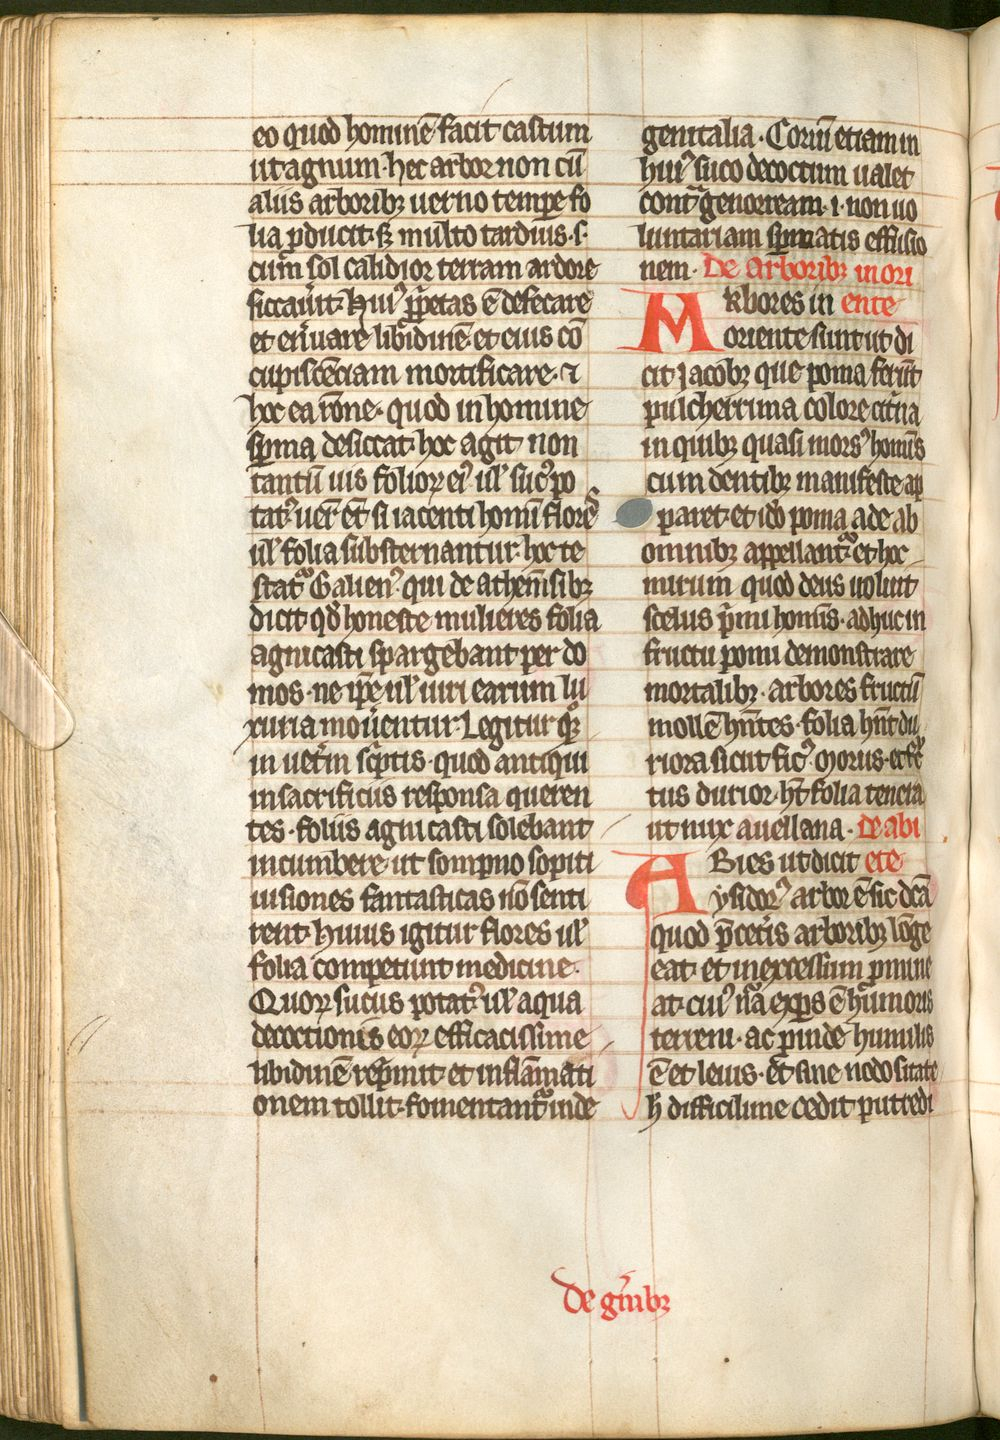 eo quod hominē facit castum
ut agnum· hec arbor non cū
aliis arboribꝫ uerno tempe fo
lia ꝓducit· sꝫ multo tardius· s·
cum̄ sol calidior terram ardore
siccauīt· Huiꝰ ꝓpetas ē defecare
et eneruare libidinē· et eius cō
cupiscēciam mortificare· ⁊
hoc ea rōne· quod in homine
sꝑma desiccat· hoc agit non
tantū uis folioꝝ eiꝰ ul̓ sucꝰ po
tatꝰ uerū etiā si iacenti homī flores
ul̓ folia substernantur· hoc te
statᷣ Galienꝰ qui de atheniēsibꝫ
dicit qđ honeste mulieres folia
agnicasti spargebant per do
mos· ne ip̄e ul̓ uiri earum lu
xuria mouerentur· Legitur quoqꝫ
in uetūm scͥptis· quod antiqui
in sacrificiis responsa queren
tes· foliis agnicasti solebant
incumbere· ut sompno sopiti
uisiones fantasticas nō senti
rent· Huius igitur flores ul̓
folia competunt medicine·
Quoꝝ sucus potatꝰ ul̓ aqua
decoctionis eoꝝ efficacissime
libidinē rep̄mit· et inflāmati
onem tollit· fomentantᷣ inde
genitalia· Coriū etiam in
huiꝰ suco decoctum ualet
contᷓ genorream· i· non uo
luntariam sꝑmatis effusio
nem· De arboribꝫ in ori
Arbores in ente
oriente sunt ut di
cit Jacobꝫ que poma ferūt
pulcherrima colore citͥna
in quibꝫ quasi morsꝰ hominis
cum dentibꝫ manifeste ap
paret· et iđo poma ade ab
omnibꝫ appellantᷣ· et hoc
mirum quod deus uoluit
scelus pͥmi homīs· adhuc in
fructu pomi demonstrare
mortalibꝫ· arbores fructū
mollē hn̄tes· folia hn̄t du
riora sicut ficꝰ· morus· et fruc
tus durior· hn̄t folia teneriora
ut nux auellana· De abi
Abies ut dicit ete
ysidorꝰ arbor ē sic dcā
quod p̄ ceteris arboribꝫ lōge
eat· et in excessum ꝓmine
at· cuiꝰ nᷓa exꝑs ē humoris
terreni· ac ꝓinde humilis
ē et leuis· et sine nodositate
h̓ difficilime cedit putredi
De gnͥibꝫ